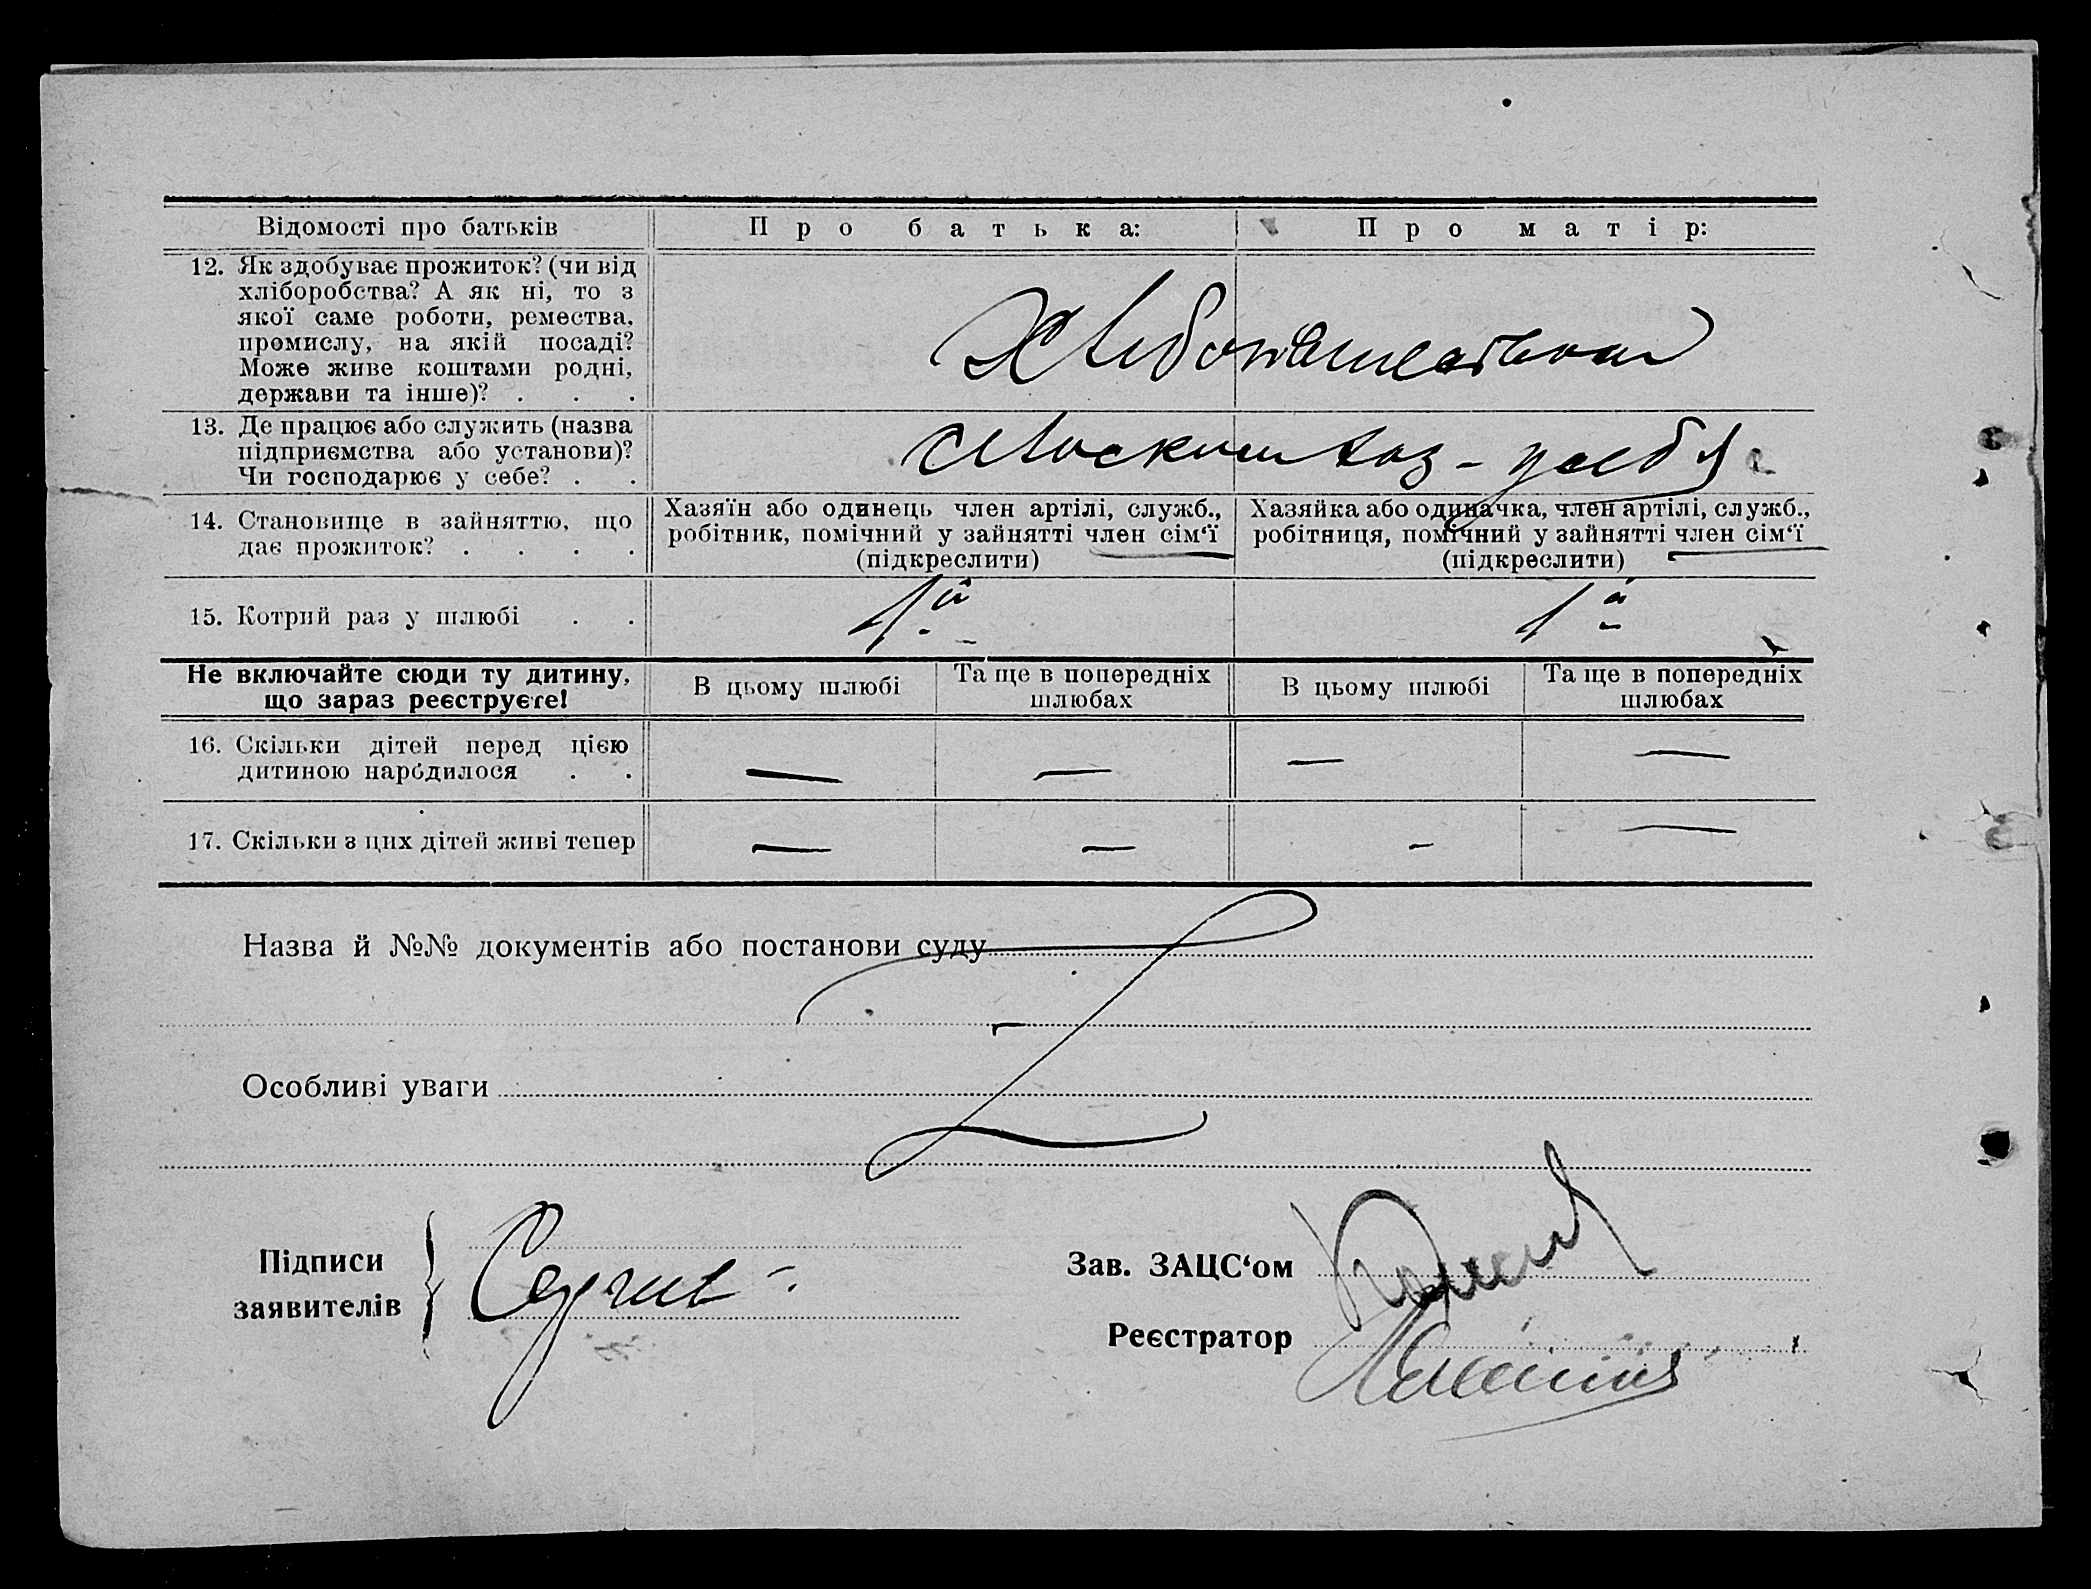 Відомості про батьків Про батька: Про матір:
12. Як здобуває прожиток? (чи від
хліборобства? А як ні, то з
якої саме роботи, ремества,
промислу, на якій посаді?
Може живе коштами родні,
держави та інше)? . . .
Хлебопашеством
13. Де працює або служить (назва
підприємства або установи)?
Чи господарює у себе? . .
у себя
14. Становище в зайняттю, що
дає прожиток? . . . .
Хазяїн або одинець член артілі, служб.,
робітник, помічний у зайнятті член сім‘ї
(підкреслити)
Хазяйка або одиначка, член артілі, служб.,
робітниця, помічний у зайнятті член сім‘ї
(підкреслити)
15. Котрий раз у шлюбі . . 1й 1й
Не включайте сюди ту дитину,
що зараз реєструєте!
В цьому шлюбі
Та ще в попередніх
шлюбах
В цьому шлюбі
Та ще в попередніх
шлюбах
16. Скільки дітей перед цією
дитиною народилося . .
— — — —
17. Скільки з цих дітей живі тепер — — - —
Назва й №№ документів або постанови суду
Особливі уваги
Підписи
заявителів
Зав. ЗАЦС‘ом
Реєстратор